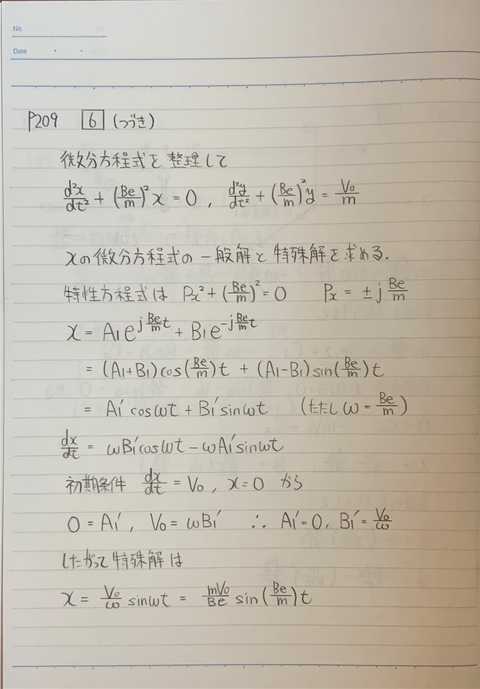 No
Date
P209 [6] (つづき)
微分方程式を整理して
d²x/dt² + (Be/m)² x = 0 , d²y/dt² + (Be/m)² y = V₀/m
xの微分方程式の一般解と特殊解を求める.
特性方程式は Px² + (Be/m)² = 0 Px = ± j Be/m
x = A₁e^{j(Be/m)t} + B₁e^{-j(Be/m)t}
= (A₁+B₁)cos(Be/m)t + (A₁-B₁)sin(Be/m)t
= A₁' cosωt + B₁' sinωt (ただし ω = Be/m)
dx/dt = ωB₁'cosωt - ωA₁'sinωt
初期条件 dx/dt = V₀ , x = 0 から
0 = A₁' , V₀ = ωB₁' ∴ A₁' = 0, B₁' = V₀/ω
したがって特殊解は
x = V₀/ω sinωt = mV₀/Be sin(Be/m)t